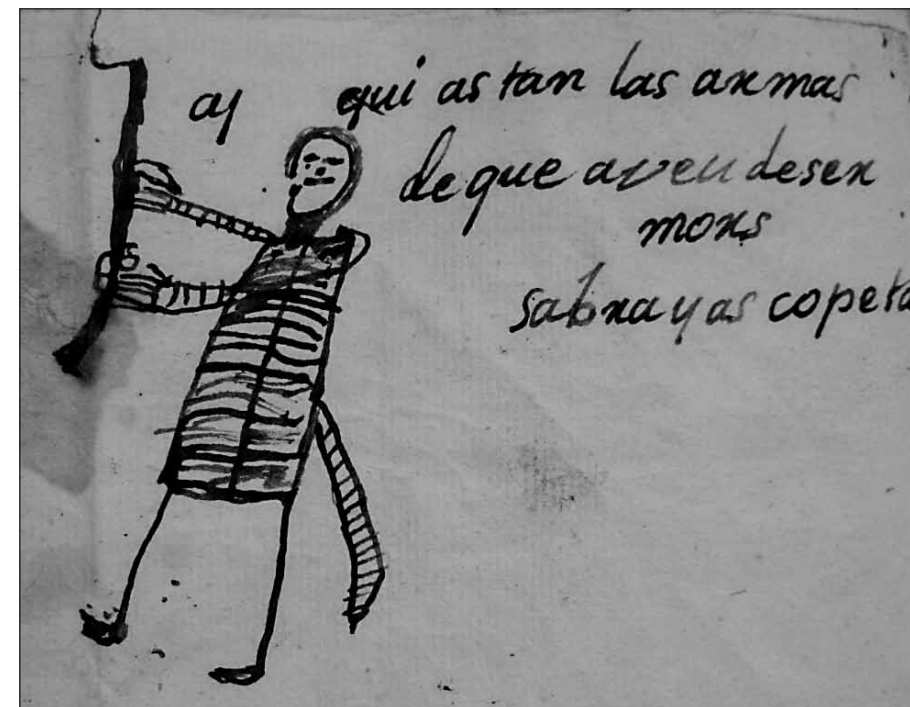 ay qui as tan las armas
de que aveu de ser
mors
sabra y as copeta